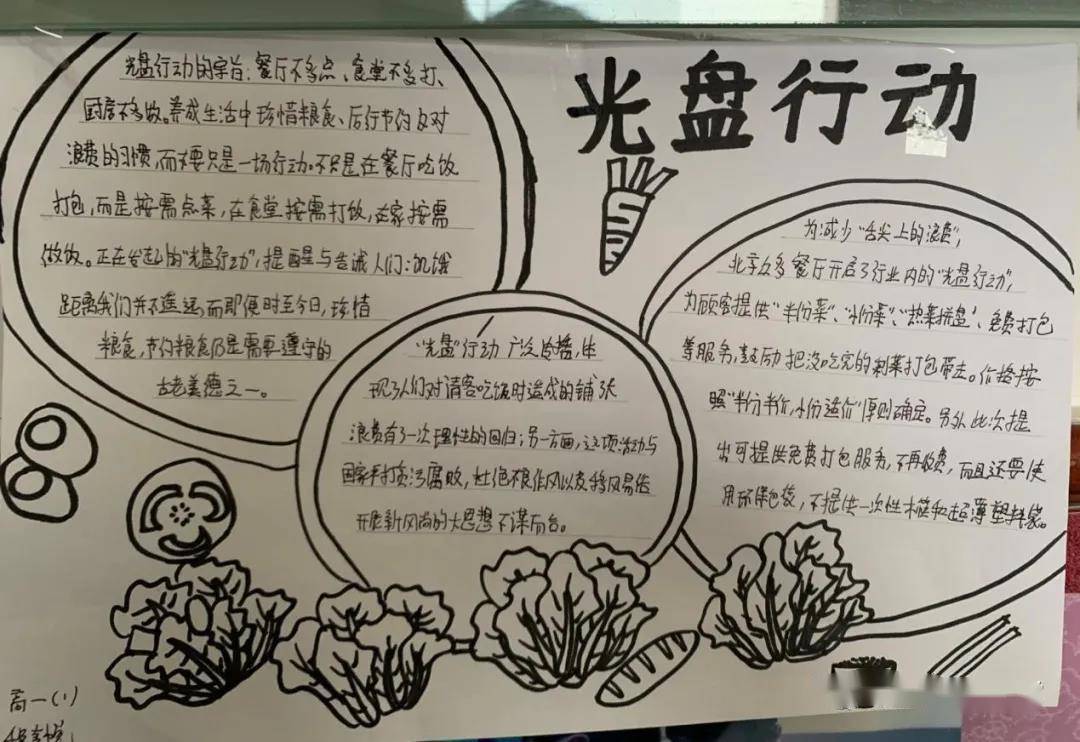 光盘行动
光盘行动的宗旨：餐厅不多点、食堂不多打、
厨房不多做。养成生活中珍惜粮食、厉行节约反对
浪费的习惯，而不要只是一场行动。不只是在餐厅吃饭
打包，而是按需点菜，在食堂按需打饭，在家按需
做饭。正在发起的“光盘行动”，提醒与告诫人们：饥饿
距离我们并不遥远，而即便时至今日，珍惜
粮食，节约粮食仍是需要遵守的
古老美德之一。
“光盘”行动广泛传播，体
现了人们对请客吃饭时造成的铺张
浪费有了一次理性的回归；另一方面，这项活动与
国家严打贪污腐败，杜绝不良作风以及移风易俗
开展新风尚的大思想不谋而合。
为减少“舌尖上的浪费”，
北京众多餐厅开启了行业内的“光盘行动”，
为顾客提供“半份菜”、“小份菜”、“热菜拼盘”、免费打包
等服务，鼓励把没吃完的剩菜打包带走。价格按
照“半份半价，小份适价”原则确定。另外此次提
出可提供免费打包服务，不再收费，而且还要使
用环保包袋，不提供一次性木筷和超薄塑料袋。
高一(1)